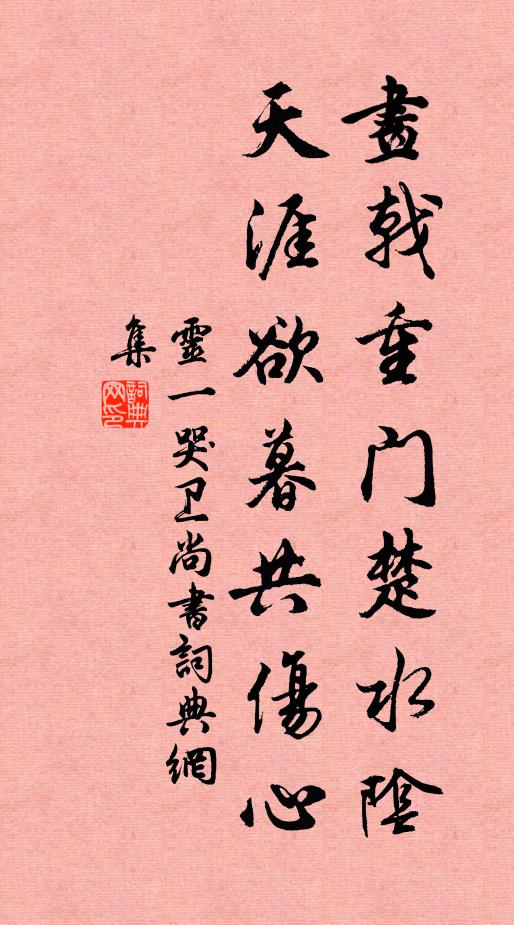 畫戟重門楚水陰
天涯欲暮共傷心
靈一哭卫尚書詞典網
集
詞典网印